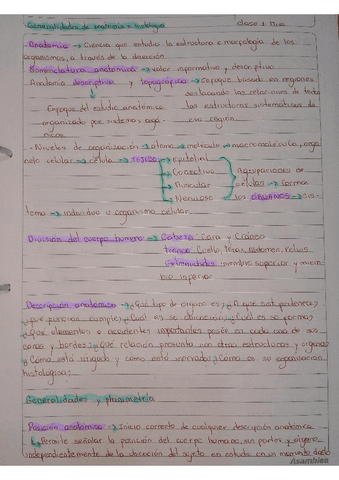 Generalidades de anatomía e histología clase 1 Mica
Anatomía → Ciencia que estudia la estructura o morfología de los
organismos, a través de la disección
Nomenclatura anatómica → valor informativo y descriptivo
Anatomía descriptiva y topográfica → Enfoque basado en regiones
destacando las relaciones de todas
Enfoque del estudio anatómico las estructuras sistematicas de
organizado por sistemas orgá esa región
nicos
- Niveles de organización → átomo → molécula → macromolécula, orga
nelo celular → célula → TEJIDO → Epitelial
→ Conectivo Agrupaciones de
→ Muscular células → forma
→ Nervioso los ORGANOS → sis-
tema → individuo u organismo celular
División del cuerpo humano → Cabeza: Cara y Cráneo
tronco: Cuello, tórax, abdomen, pelvis
Extremidades: miembro superior y miem
bro inferior
Descripción anatómica → ¿Qué tipo de órgano es? ¿A que sist. pertenece?
¿que función cumple? ¿Cuál es su ubicación? ¿Cuál es su forma?
¿Qué elementos o accidentes importantes posee en cada una de sus
caras y bordes? ¿Qué relación presenta con otras estructuras y órganos?
¿Cómo está irrigado y como está inervado? ¿Cómo es su organización
histológica?
Generalidades y planimetría
Posición anatómica → Inicio correcto de cualquier descripción anatómica
↳ Permite señalar la posición del cuerpo humano, sus partes y órganos
independientemente de la ubicación del sujeto en estudio en un momento dado
Asamblea